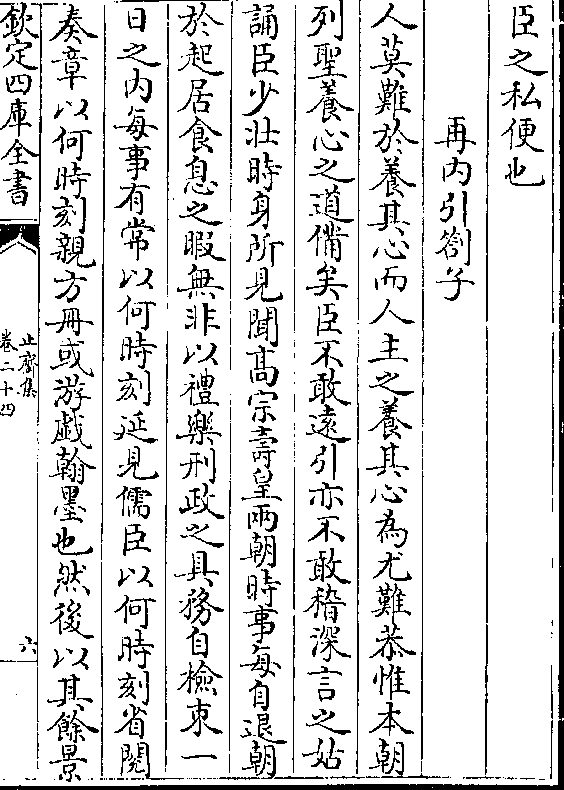 臣之私便也
再内引劄子
人莫難於養其心而人主之養其心為尤難恭惟本朝
列聖養心之道備矣臣不敢遠引亦不敢稽深言之姑
誦臣少壯時身所見聞高宗壽皇兩朝時事每自退朝
於起居食息之暇無非以禮樂刑政之具務自檢束一
日之内每事有常以何時刻延見儒臣以何時刻省閲
奏章以何時刻親方冊或游戲翰墨也然後以其餘景
欽定四庫全書
止齋集
卷二十四
六